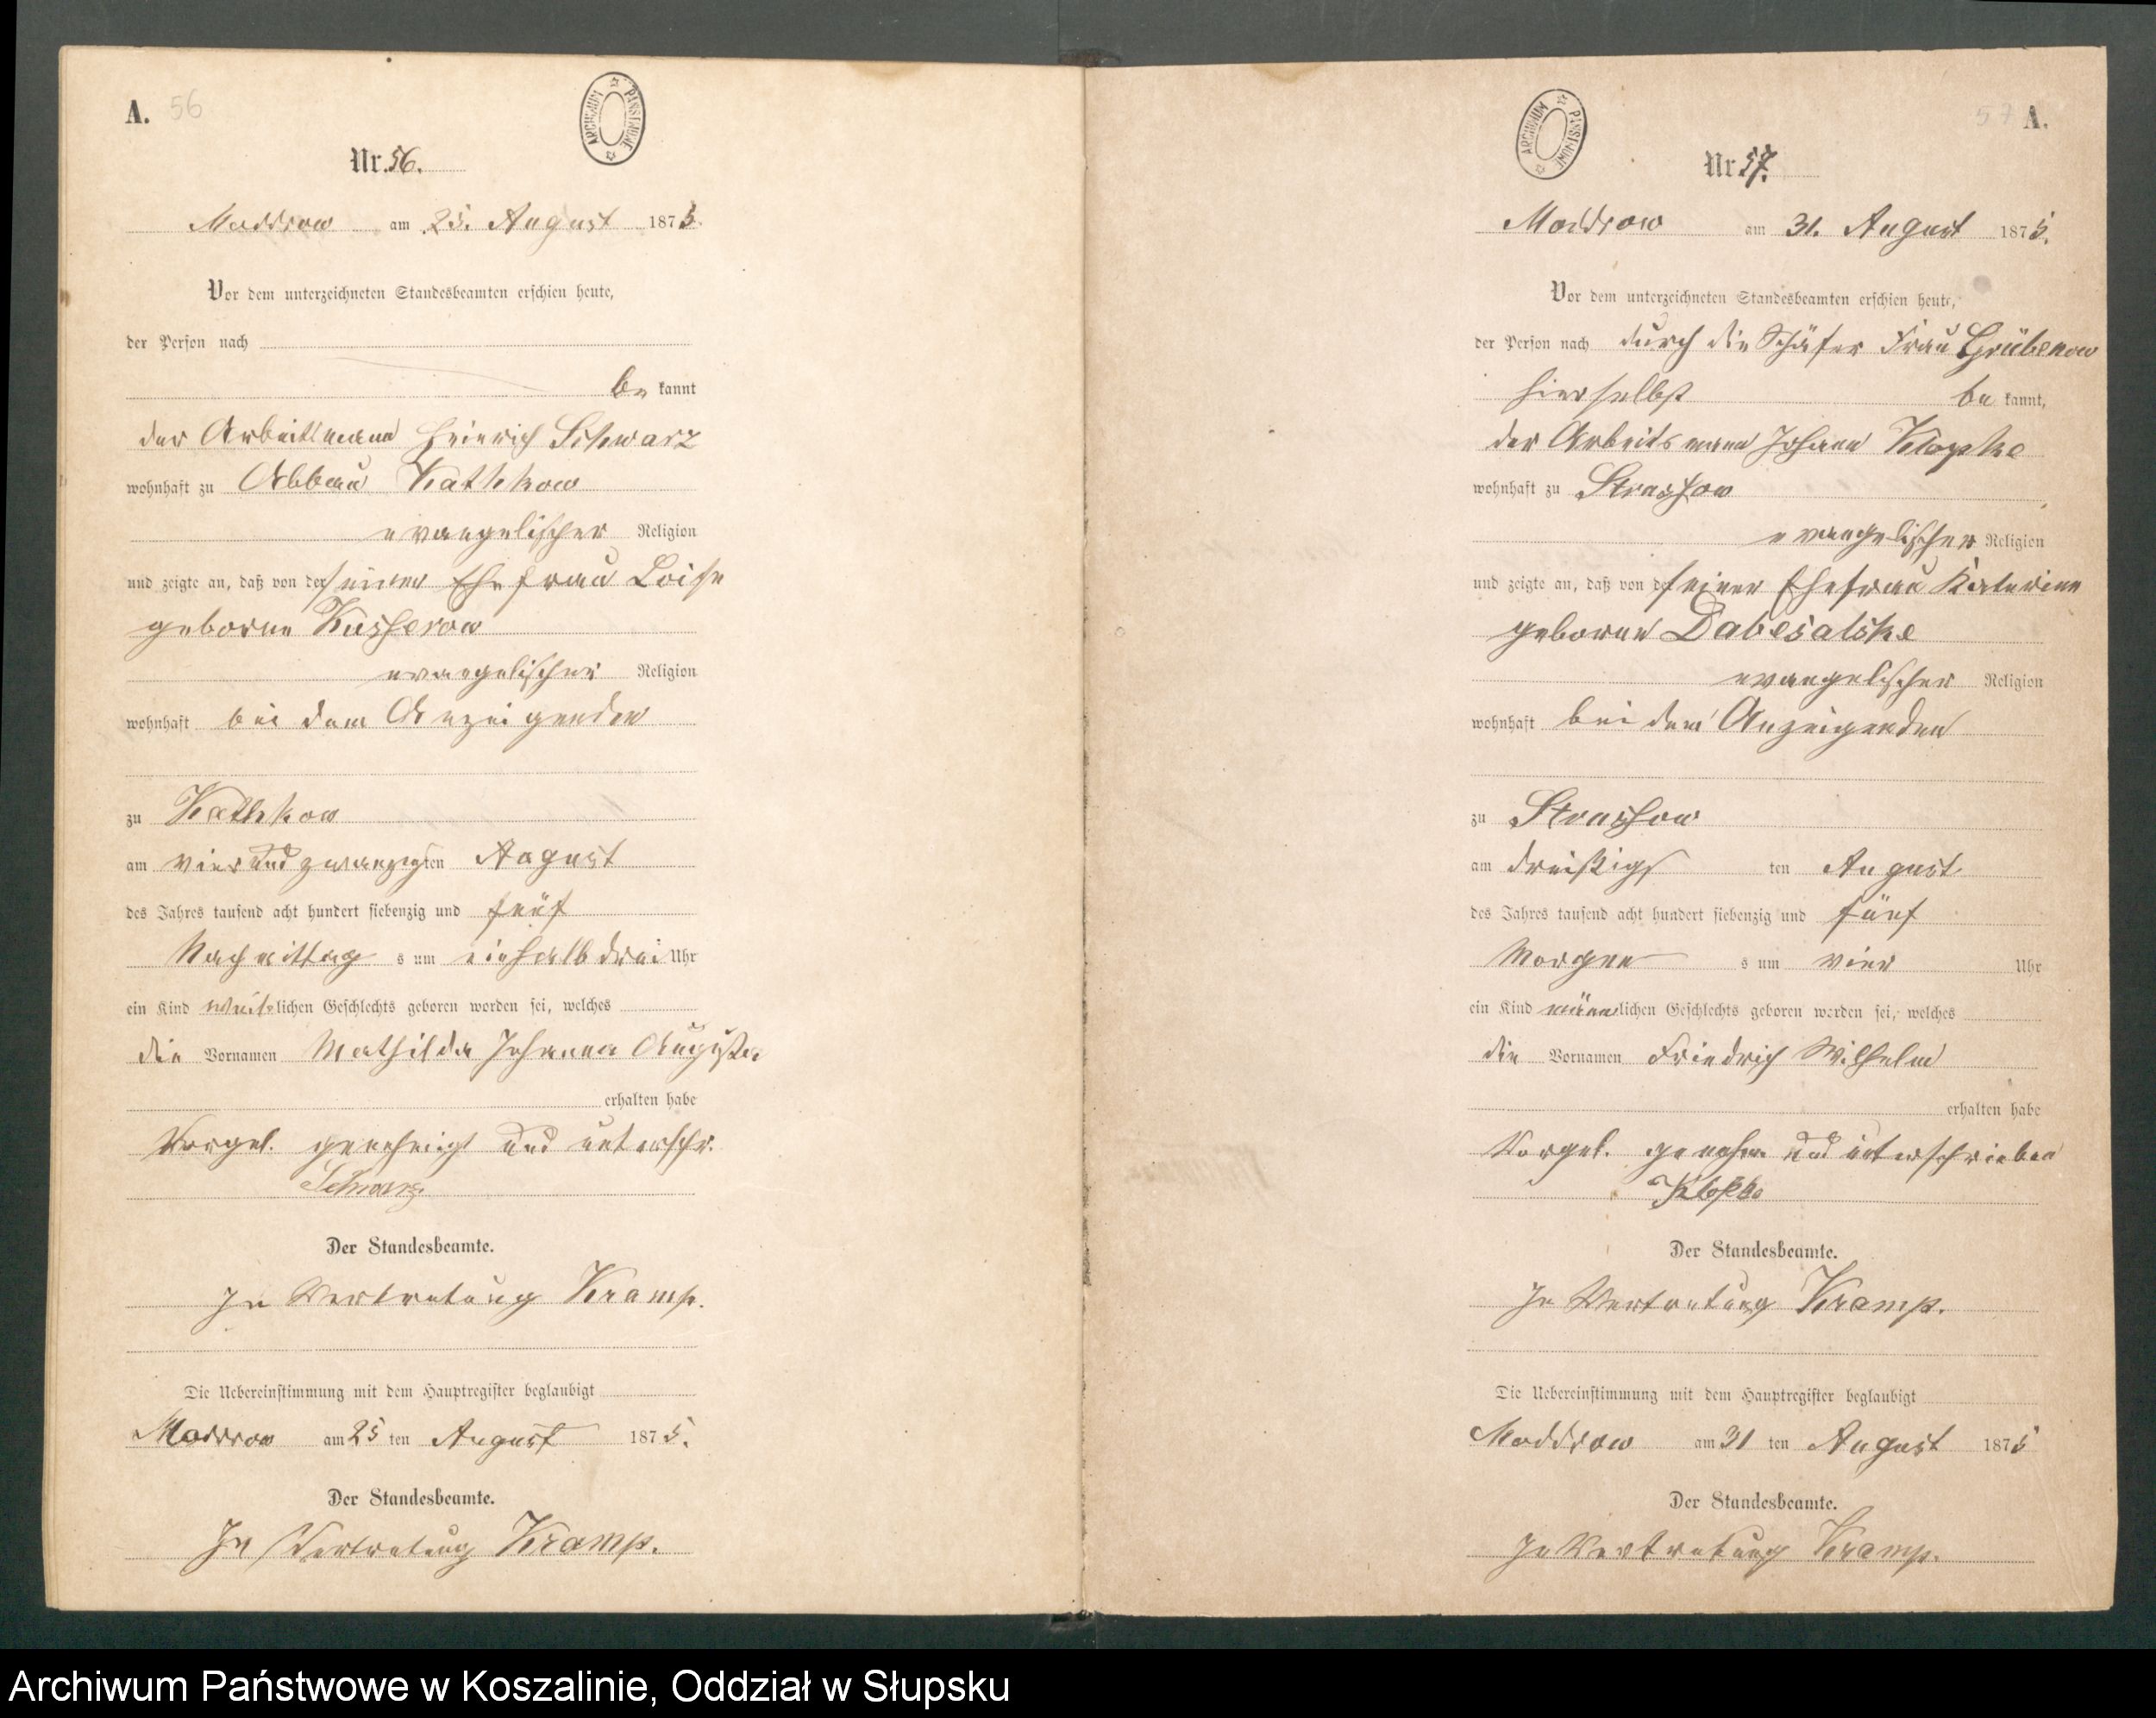 A. 56
ARCHIWUM PAŃSTWOWE
Nr. 56.
Moddrow am 25. August 1875.
Vor dem unterzeichneten Standesbeamten erschien heute,
der Person nach
be kannt
der Arbeitsmann Heinrich Schwarz
wohnhaft zu Abbau Kathkow
evangelischer Religion
und zeigte an, daß von der seiner Ehefrau Loise
geborne Kusserow
evangelischer Religion
wohnhaft bei dem Anzeigenden
zu Kathkow
am vier und zwanzigsten August
des Jahres tausend acht hundert siebenzig und fünf
Nachmittag s um einhalb drei Uhr
ein Kind weiblichen Geschlechts geboren worden sei, welches
die Vornamen Mathilda Johanna Auguste
erhalten habe
Vorgel. genehmigt und unterschr.
Schwarz
Der Standesbeamte.
In Vertretung Kramp.
Die Uebereinstimmung mit dem Hauptregister beglaubigt
Moddrow am 25 ten August 1875.
Der Standesbeamte.
In Vertretung Kramp.
57 A.
ARCHIWUM PAŃSTWOWE
Nr 57.
Moddrow am 31. August 1875.
Vor dem unterzeichneten Standesbeamten erschien heute,
der Person nach durch die Schäfer Frau Grübenow
hierselbst be kannt,
der Arbeitsmann Johann Klopke
wohnhaft zu Strussow
evangelischer Religion
und zeigte an, daß von der seiner Ehefrau Katarine
geborne Dabesalske
evangelischer Religion
wohnhaft bei dem Anzeigenden
zu Strussow
am dreißigs ten August
des Jahres tausend acht hundert siebenzig und fünf
Morgen s um vier Uhr
ein Kind männlichen Geschlechts geboren worden sei, welches
die Vornamen Friedrich Wilhelm
erhalten habe
Vorgel. genehm und unterschrieben
Der Standesbeamte.
In Vertretung Kramp.
Die Uebereinstimmung mit dem Hauptregister beglaubigt
Moddrow am 31 ten August 1875
Der Standesbeamte.
In Vertretung Kramp.
Archiwum Państwowe w Koszalinie, Oddział w Słupsku